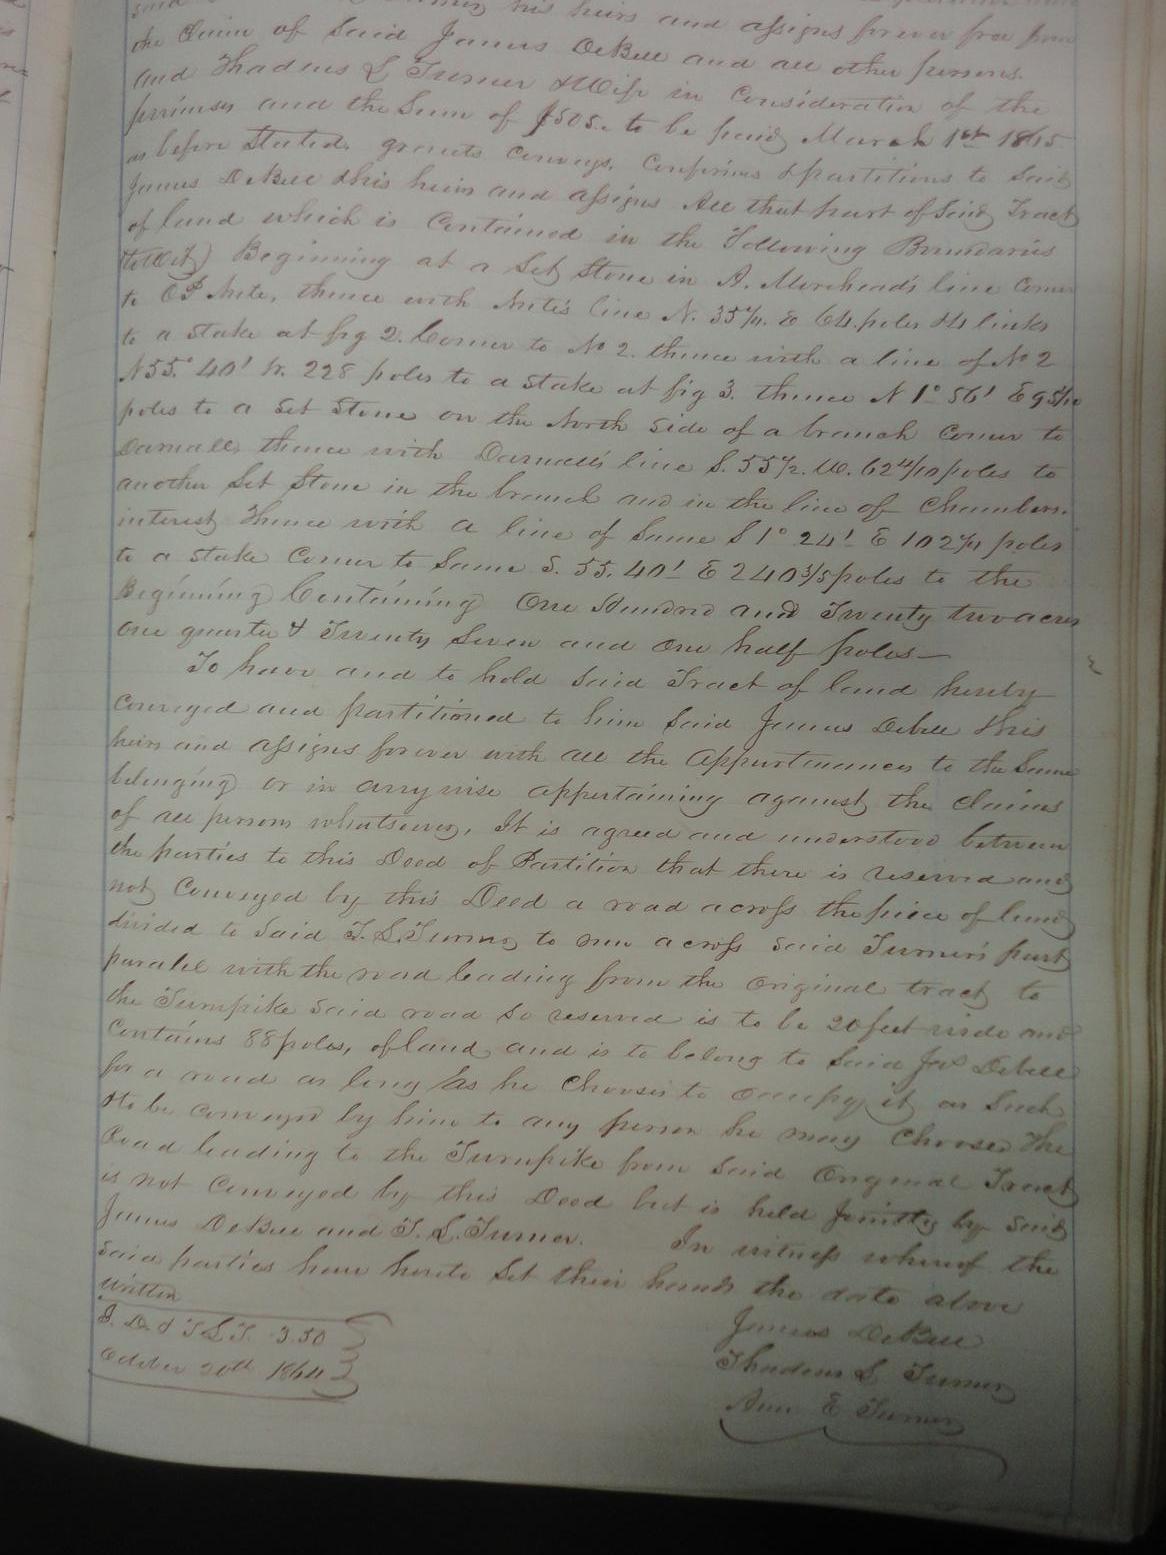 his heirs and assigns forever free from
the Claim of Said James DeBell and all other persons.
and Thadeus L Turner & Wife in Consideration of the
primises and the Sum of $505. to be paid March 1st 1865
as before Stated. grants Conveys, Confirms & partitions to Said
James DeBell & his heirs and assigns All that part of Said Tract
of land which is Contained in the following Boundaries
(towit) Beginning at a Set Stone in A. Moreheads line Corner
to thence with line N. 35 E 64. poles 14 links
to a stake at fig 2. Corner to No 2. thence with a line of No 2
N 55.° 40' W. 228 poles to a stake at fig 3. thence N 1° 56' E
poles to a Set Stone on the North side of a branch Corner to
Darnall, thence with Darnall's line S. 55 1/2. W. 62 4/10 poles to
another Set Stone in the branch and in the line of Chambers.
interest thence with a line of Same S 1° 24' E 102 poles
to a stake Corner to Same S. 55. 40' E 240 3/5 poles to the
Beginning Containing One Hundred and Twenty two acres
One quarter & Twenty Seven and One half poles—
To have and to hold Said Tract of land hereby
Conveyed and partitioned to him Said James Debell & his
heirs and assigns forever with all the Appurtenances to the Same
belonging or in anywise appertaining against the Claims
of all persons whatsoever, It is agreed and understood between
the parties to this Deed of Partition that there is reserved and
not Conveyed by this Deed a road across the piece of land
divided to Said T. L. Turner to run across said Turner's part
paralel with the road leading from the Original tract to
the Turnpike said road so reserved is to be 20 feet wide and
Contains 88 poles, of land and is to belong to Said Jas Debell
for a road as long As he Chooses to Occupy it as Such
& to be Conveyed by him to any person he may Choose The
Road leading to the Turnpike from Said Original Tract
is not Conveyed by this Deed but is held Jointly by Said
James DeBell and T. L. Turner. In witness whereof the
said parties have hereto Set their hands the date above
written
J. D. & T L T. 3.50
October 20th 1864
James DeBell
Thadeus L Turner
Ann E Turner